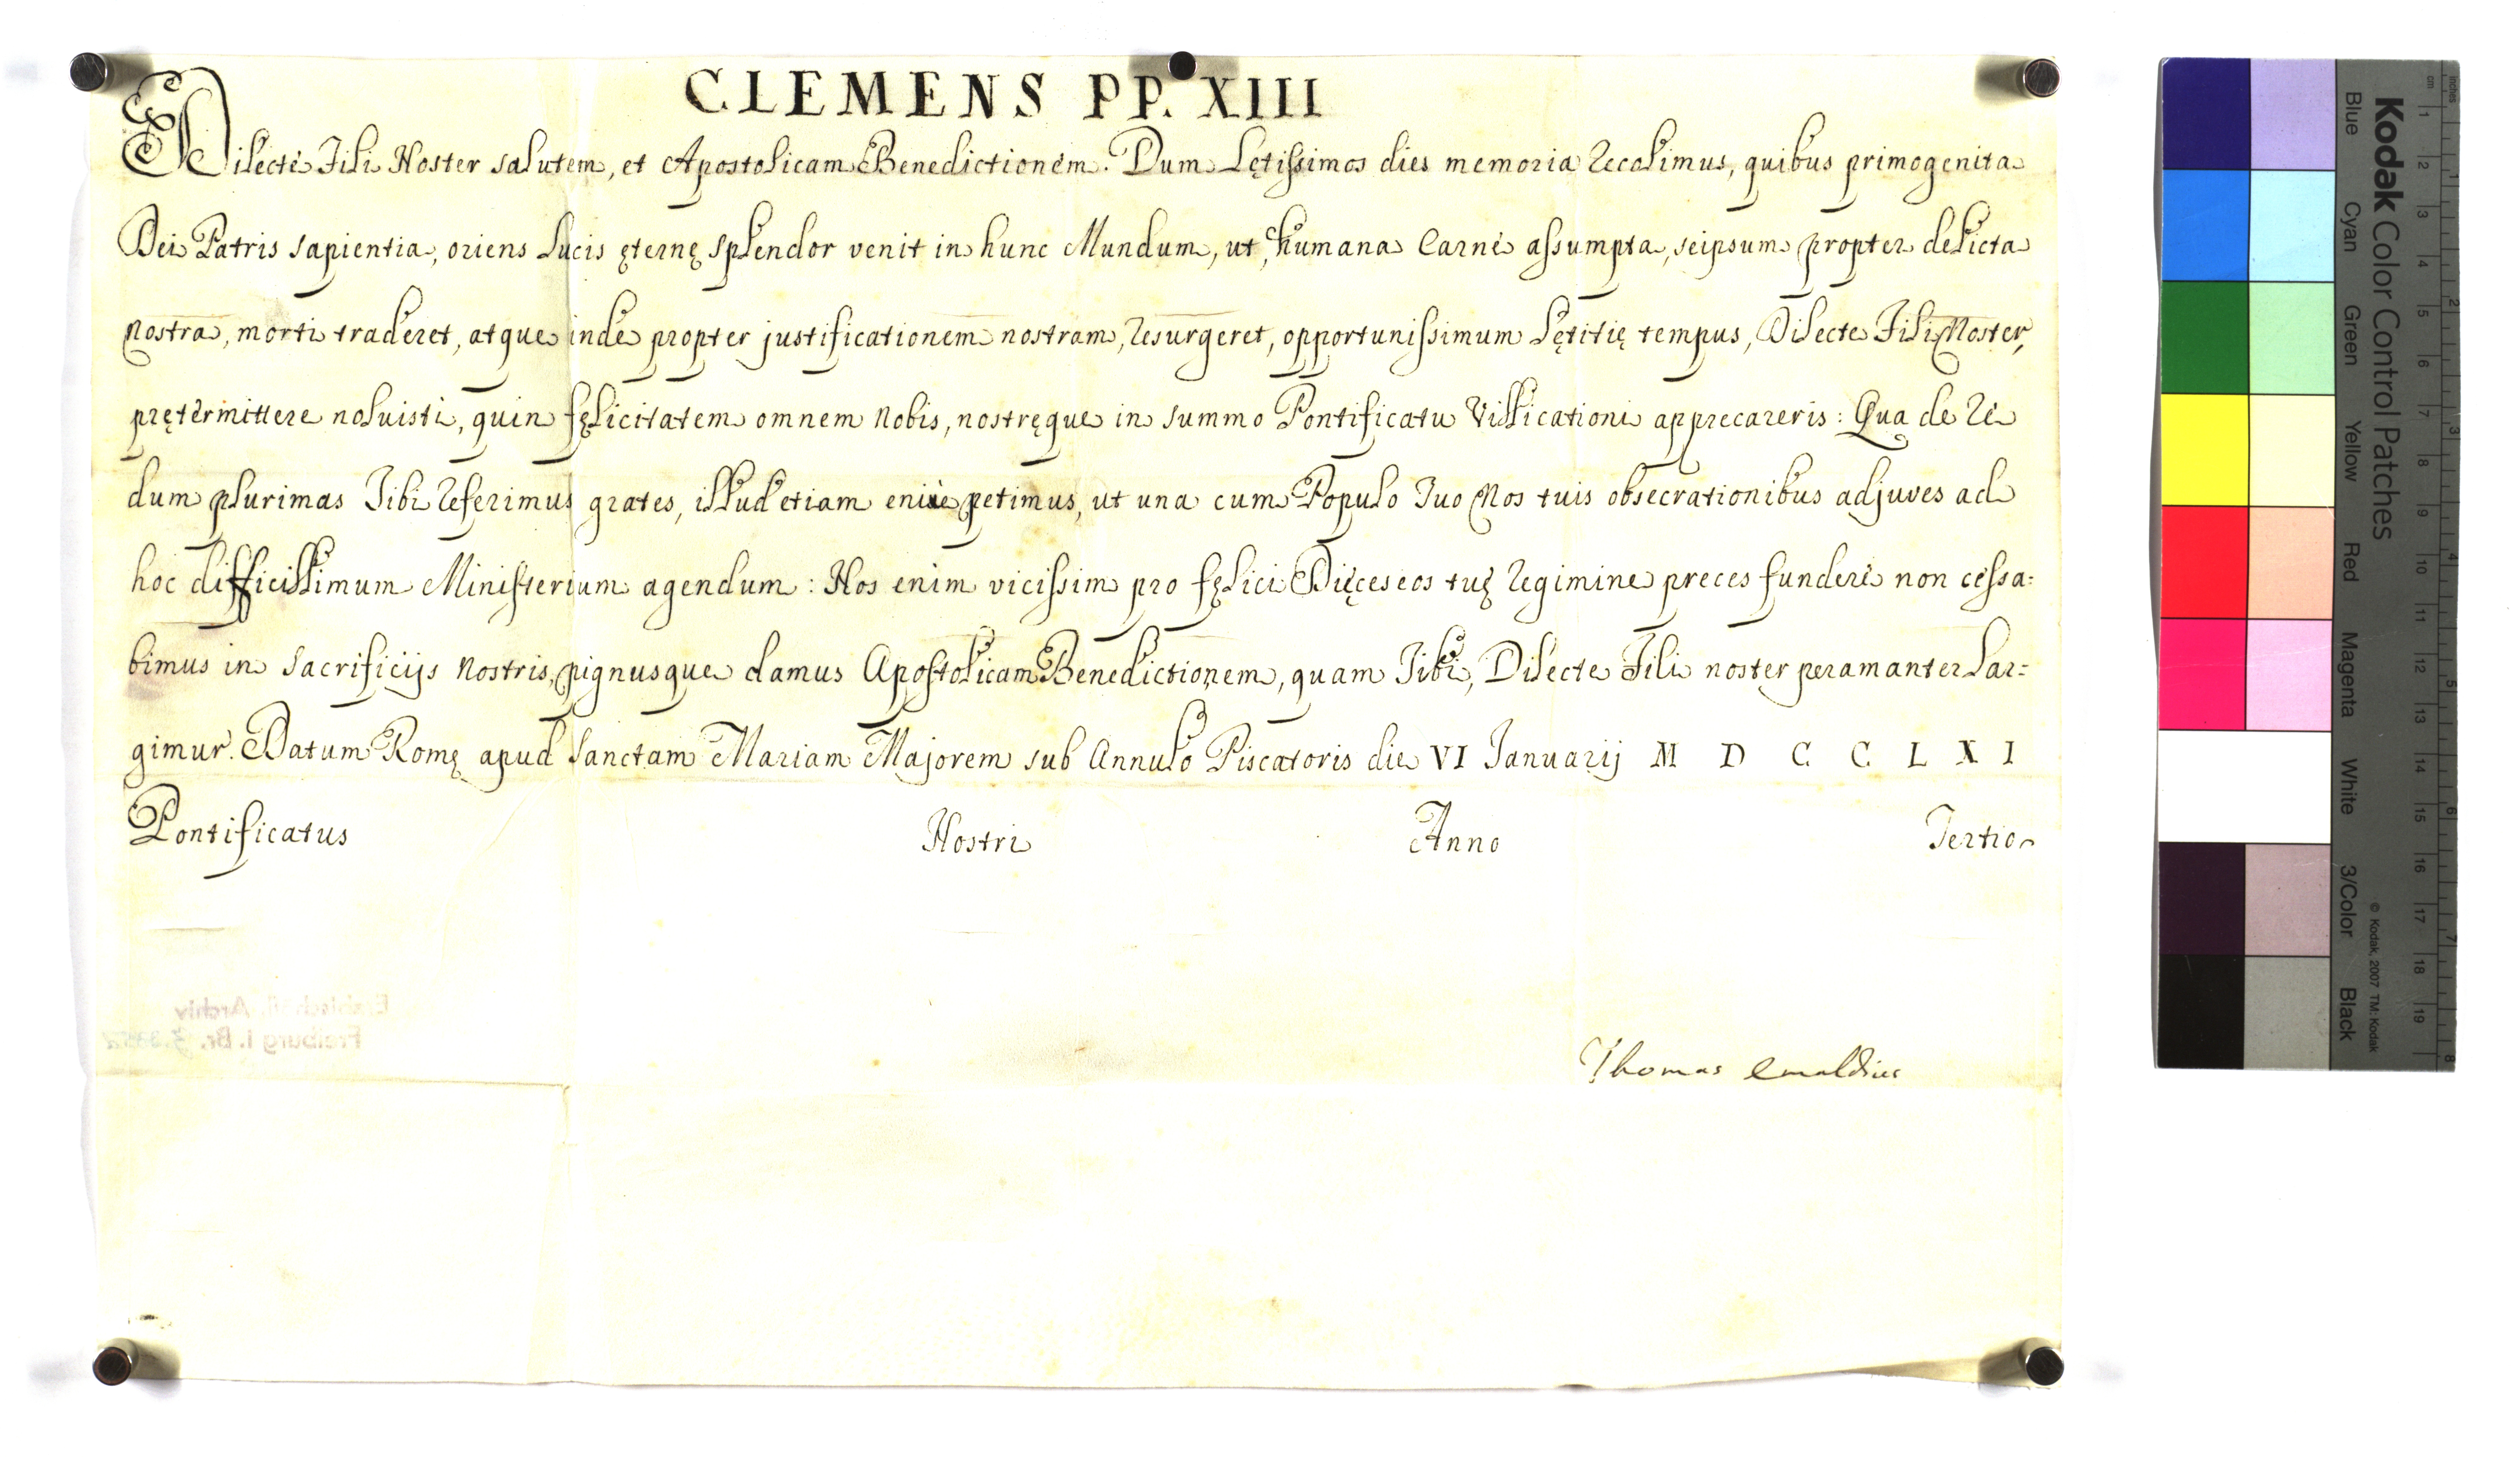 CLEMENS PP. XIII
Dilecte Fili Noster salutem, et Apostolicam Benedictionem. Dum Lętissimos dies memoria recolimus, quibus primogenita
Dei Patris sapientia, oriens Lucis ęternę splendor venit in hunc Mundum, ut, humana Carne assumpta, seipsum propter delicta
nostra, morti traderet, atque inde propter justificationem nostram, resurgeret, opportunissimum Lętitię tempus, Dilecte Fili Noster,
prętermittere noluisti, quin fęlicitatem omnem Nobis, nostręque in summo Pontificatu Villicationi apprecareris: Qua de re
dum plurimas Tibi referimus grates, illud etiam enixe petimus, ut una cum Populo Tuo Nos tuis obsecrationibus adjuves ad
hoc difficillimum Ministerium agendum: Nos enim vicissim pro fęlici Dięceseos tuę regimine preces fundere non cessa=
bimus in Sacrificijs Nostris, pignusque damus Apostolicam Benedictionem, quam Tibi, Dilecte Fili noster peramanter Lar=
gimur. Datum Romę apud Sanctam Mariam Majorem sub Annulo Piscatoris die VI Januarij M D C C L X I
Pontificatus Nostri Anno Tertio
Thomas Emaldius
Archiv
Freiburg i. Br.
Kodak Color Control Patches
Blue Cyan Green Yellow Red Magenta White 3/Color Black
© Kodak, 2007 TM: Kodak
cm 1 2 3 4 5 6 7 8 9 10 11 12 13 14 15 16 17 18 19
inches 1 2 3 4 5 6 7 8